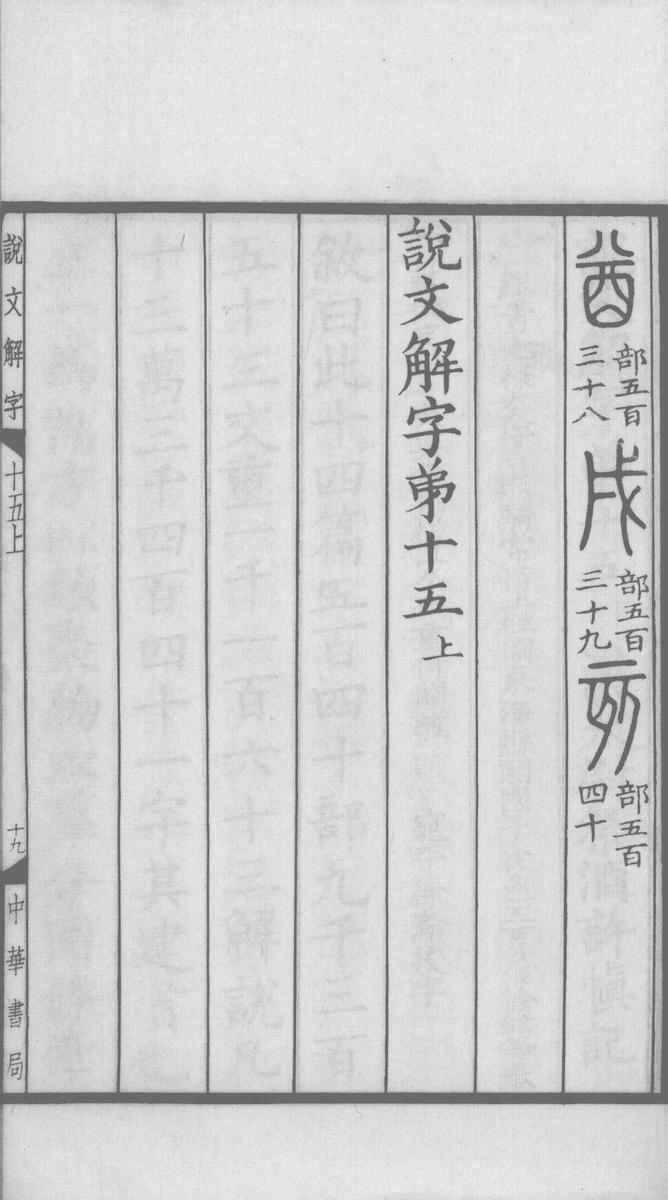 酋 部五百三十八 戌 部五百三十九 亥 部五百四十
說文解字弟十五上
說文解字 十五上 十九 中華書局